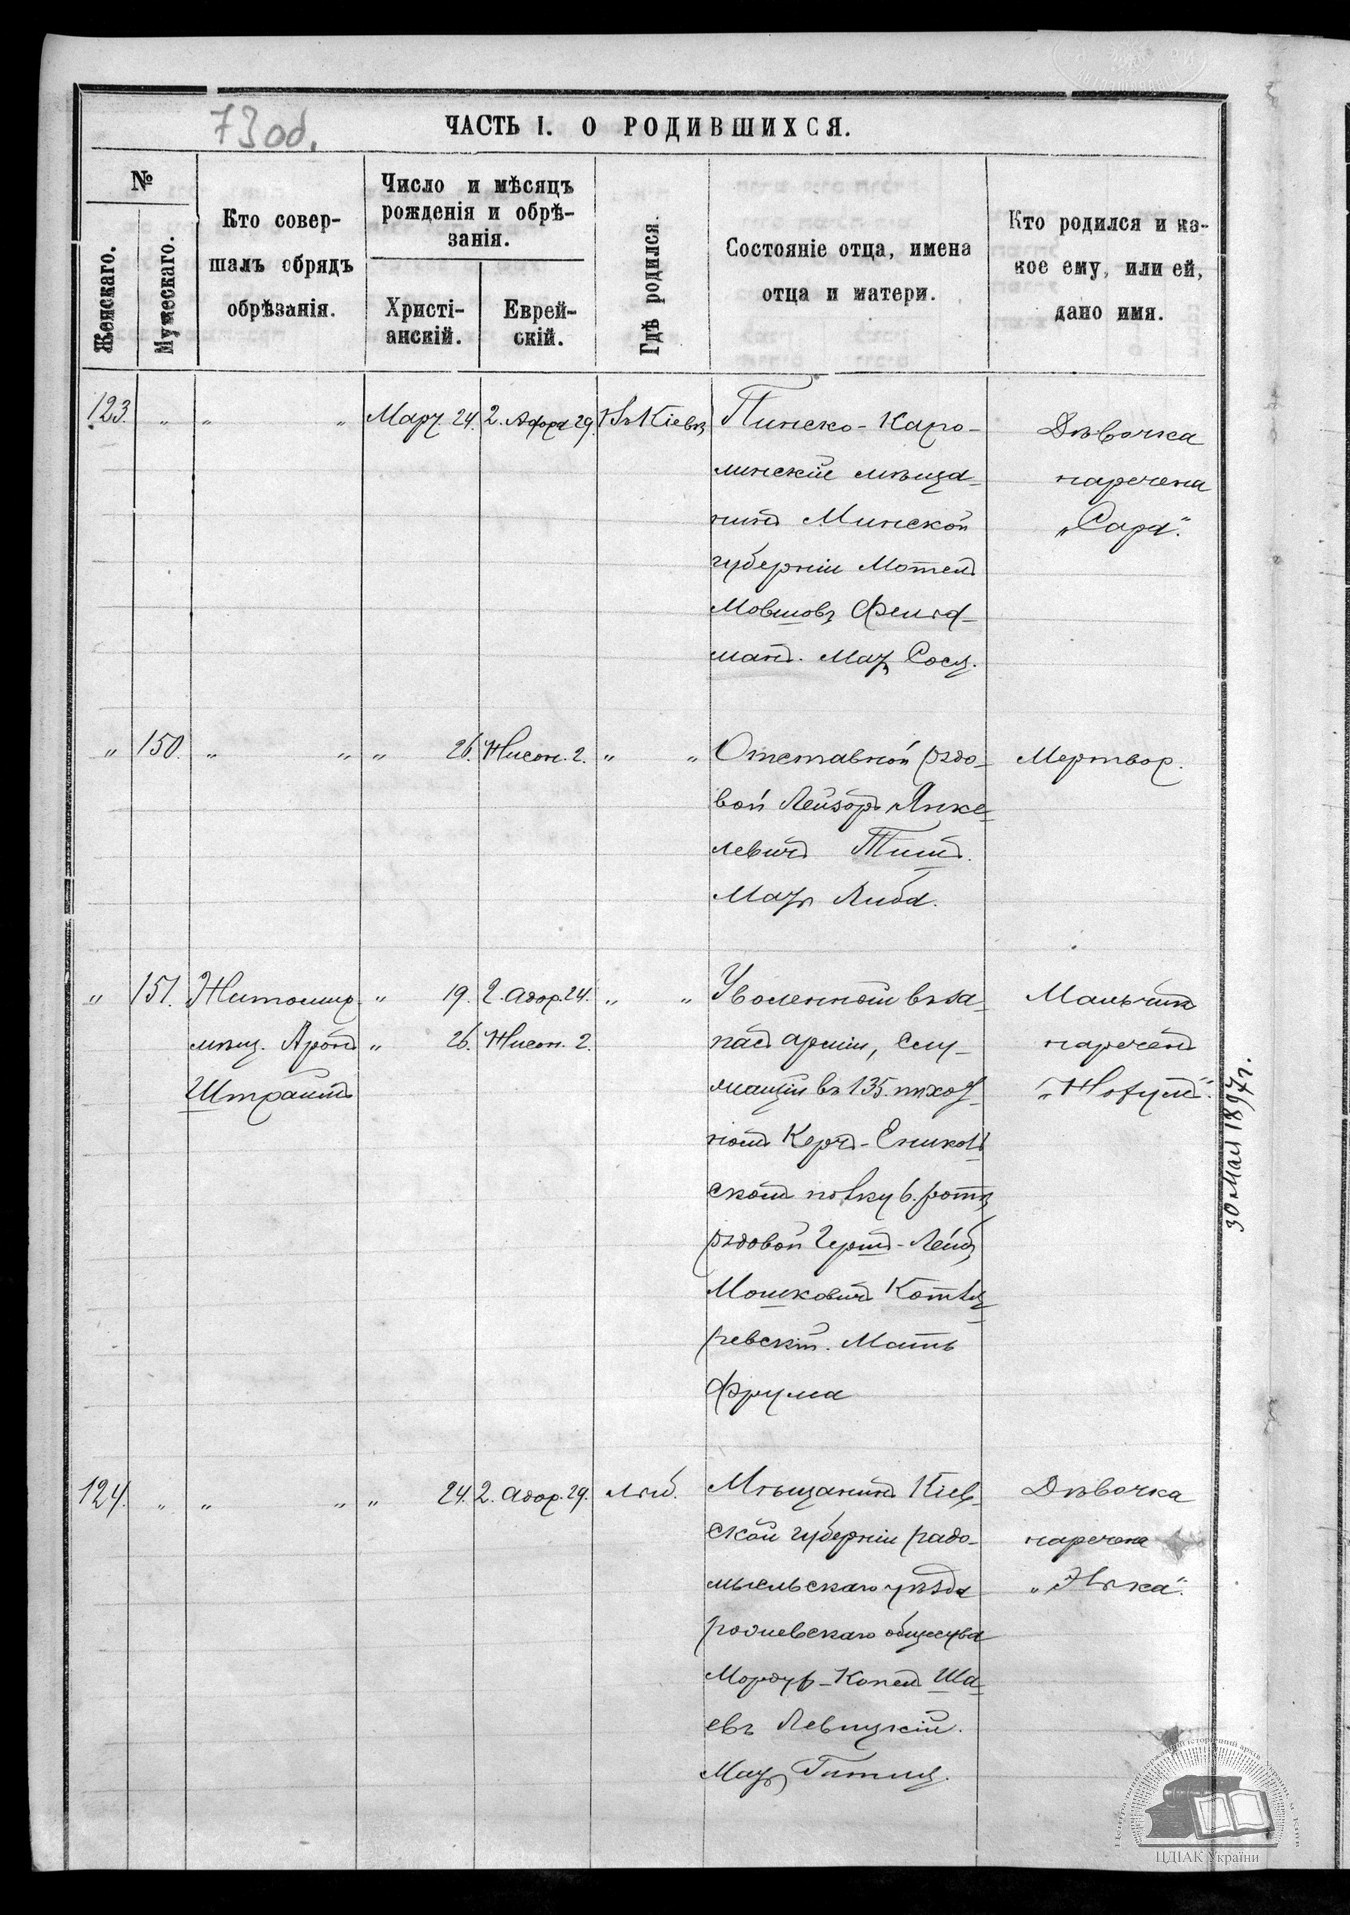 73 об.
ЧАСТЬ I. О РОДИВШИХСЯ.
№
Женскаго.
Мужескаго.
Кто совер-
шалъ обрядъ
обрѣзанія.
Число и мѣсяцъ
рожденія и обрѣ-
занія.
Христі-
анскій.
Еврей-
скій.
Гдѣ родился.
Состояніе отца, имена
отца и матери.
Кто родился и ка-
кое ему, или ей,
дано имя.
123. " " " Мар. 24. 2. Адора 29. Въ Кіевѣ
Пинско-Каро-
линскій мѣща-
нинъ Минской
губерніи Мотель
Мовшовъ Фельд-
манъ. Мать Сося.
Дѣвочка
наречена
„Сара".
" 150. " " " 26. Нисон. 2. " "
Отставной рядо-
вой Лейзоръ Янке-
левичъ Тишъ.
Мать Либа.
Мертвор.
" 151. Житомир. " 19. 2. Адор. 24. " "
мѣщ. Аронъ " 26. Нисон. 2.
Штраимъ
Уволенный въ за-
пасъ арміи, слу-
жащій въ 135. пѣхот-
номъ Керчь-Еникол-
скомъ полку 6. роты
рядовой Гершъ-Лейбъ
Мошковичъ Котля-
ревскій. Мать
Фрума
Мальчикъ
нареченъ
„Нохумъ".
124. " " " " 24. 2. Адор. 29. Лыб.
Мѣщанинъ Кіев-
ской губерніи радо-
мысльскаго уѣзда
общества
Мордух-Копел Ша-
евъ Левицкій.
Мать Гитля.
Дѣвочка
наречена
30 Мая 1897 г.
ЦДІАК України